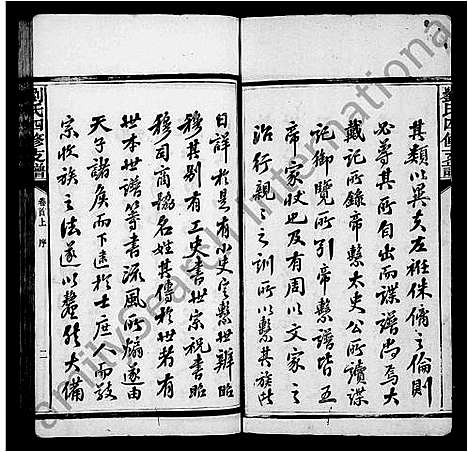 劉氏四修支譜
其類以異夫左袵侏𠌯之倫則
必尊其所自出而譜諜尚焉大
戴記所錄帝繫太史公所讀諜
記御覽所引帝繫譜皆五
帝家狀也及有周以文家之
治行親親之訓所以繫其族類
日詳於是有小史定繫世辨昭
穆其別有工史書世宗祝書昭
穆司商協名姓其傳於世者有
世本世譜等書流風所煽遂由
天子諸侯而下達於士庶人而敬
宗收族之法遂以釐然大備
劉氏四修支譜
卷首上 序
二
FamilySearch International